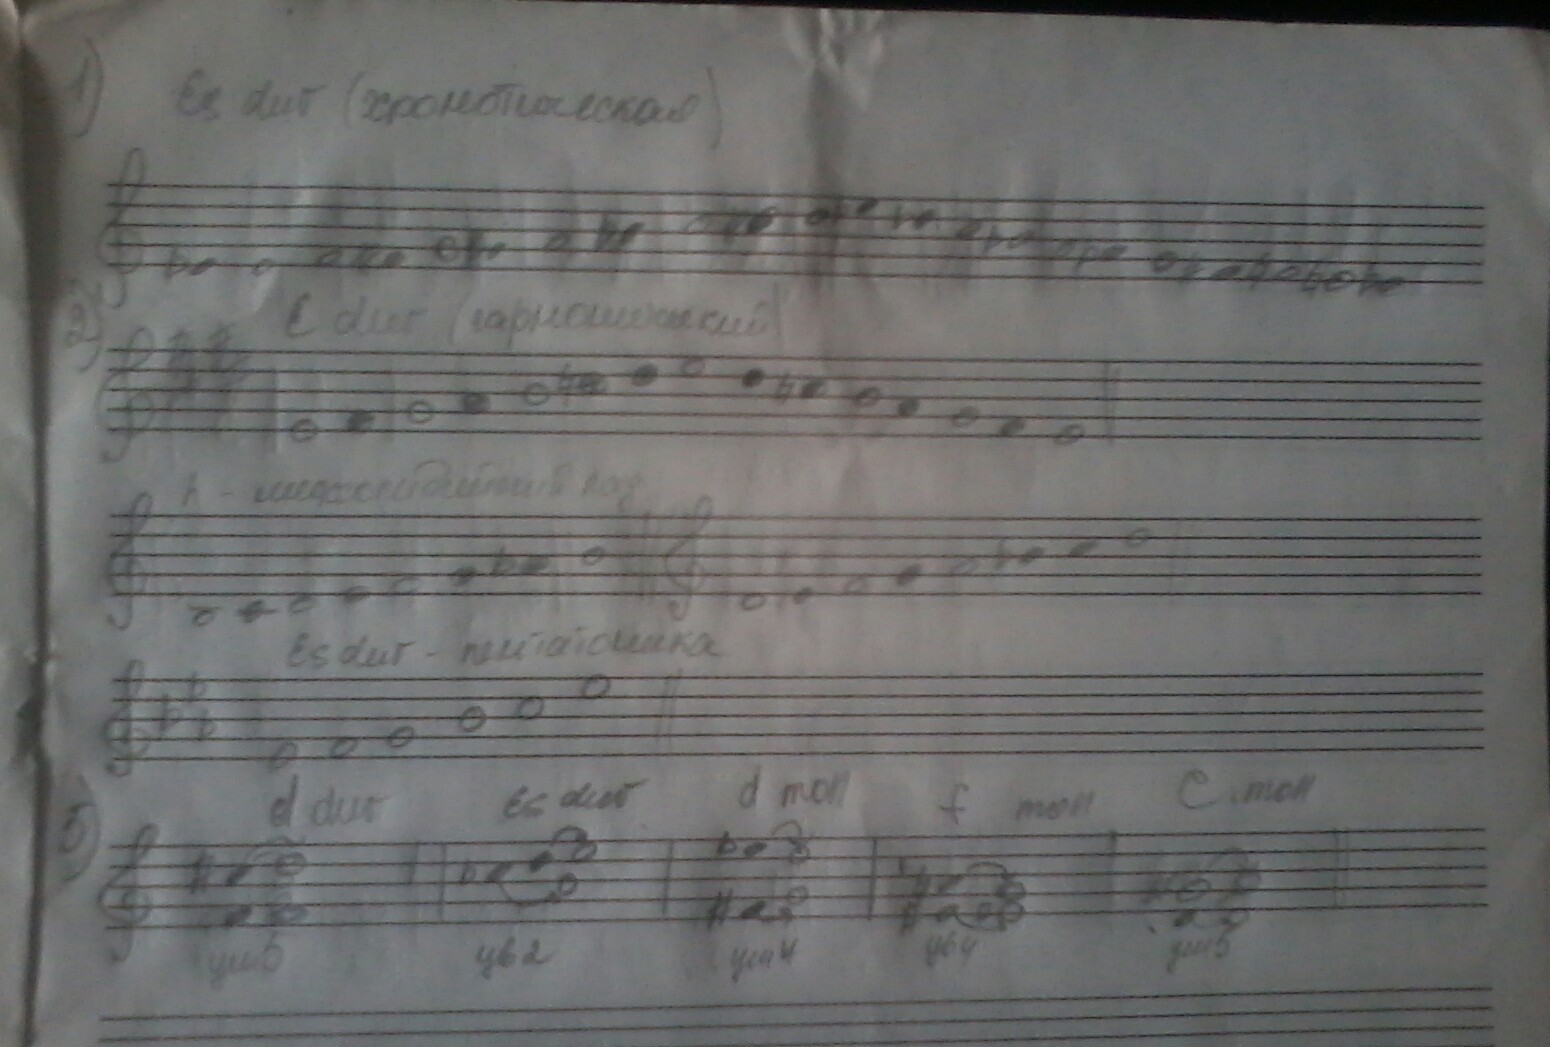 1) Es dur (хроматическая)
2) E dur (гармонический)
h - миксолидийский лад
Es dur - пентатоника
3) d dur Es dur d moll f moll C moll
ум5 ув2 ум4 ув4 ум5